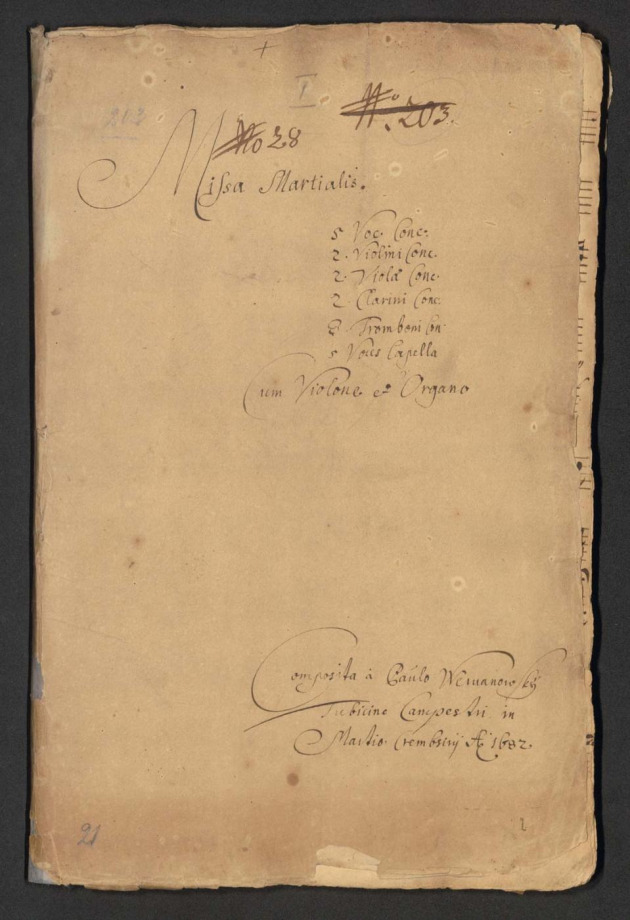 +
I
203
N:o 203.
No 28
Missa Martialis.
5 Voc. Conc.
2. Violini Conc.
2. Violæ Conc.
2. Clarini Conc.
3. Tromboni Con
5 Voces Capella
Cum Violone et Organo
Composita à Paulo Weiuanowsky
Tubicine Campestri in
Martio Crembsirij Aõ 1682.
21
1